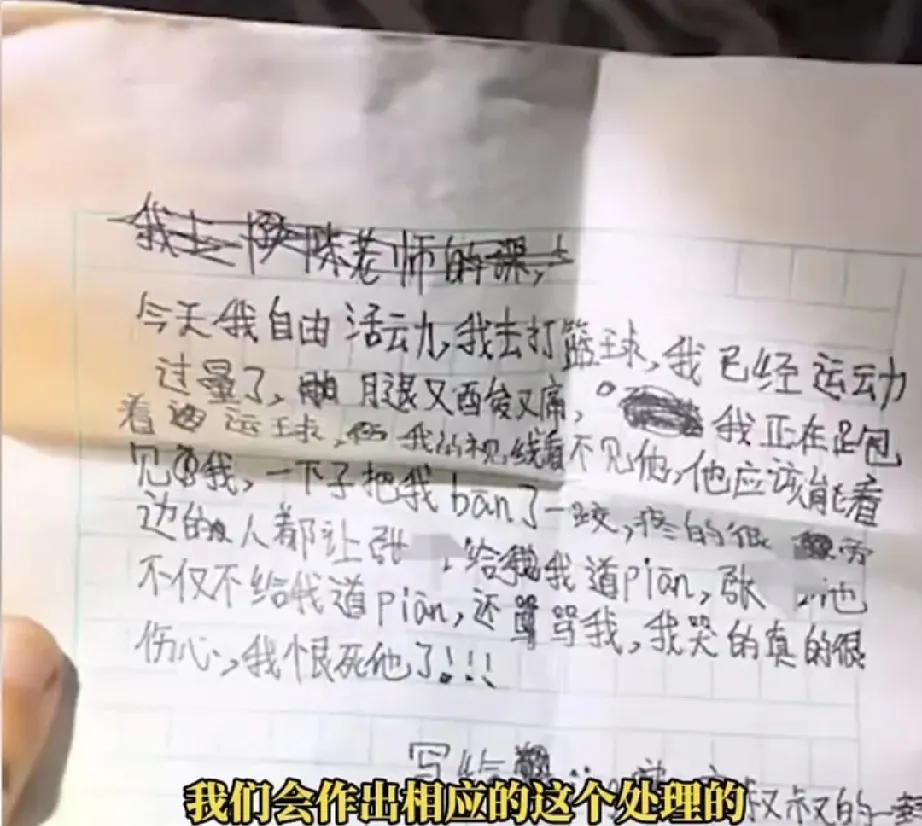 我上一陈老师的课,
今天我自由活云力,我去打篮球,我已经运动
过量了,腿又酸又痛。我正在跑
着运球,我的视线看不见他,他应该能看
见我,一下子把我bàn了一跤,疼的很旁
边的人都让张给我道piàn,张他
不仅不给我道piàn,还骂我,我哭的真的很
伤心,我恨死他了!!!
写给叔叔的一封
我们会作出相应的这个处理的